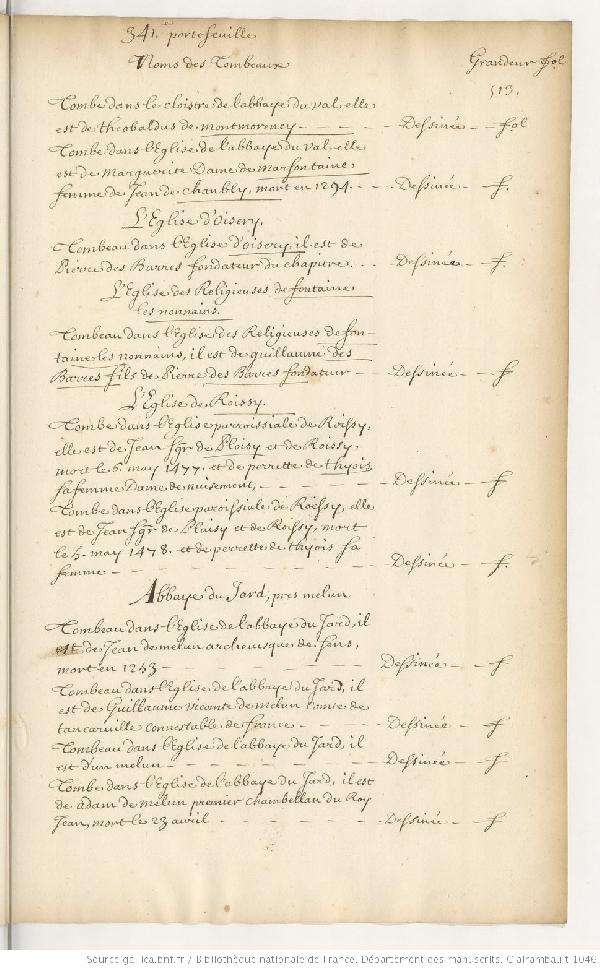 341.e portefeuille
Noms des Tombeaux Grandeur fol.
513.
Tombe dans le cloistre de l'abbaye du val, elle
est de theobaldus de montmorency - - - Dessinée - fol
Tombe dans l'Eglise de l'abbaye du val, elle
est de Marguerite Dame de Marfontaine
femme de Jean de chambly, mort en 1294. - - Dessinée - f.
L'Eglise d'oisery.
Tombeau dans l'Eglise d'oisery, il est de
Pierre des Barres fondateur du chapitre. - - Dessinée - f.
L'Eglise des Religieuses de fontaine
les nonnains.
Tombeau dans l'Eglise des Religieuses de fon-
taine les nonnains, il est de guillaume des
Barres fils de Pierre des Barres fondateur - - Dessinée - f
L'Eglise de Roissy.
Tombe dans l'Eglise parroissiale de Roissy,
elle est de Jean sgr. de Ploisy et de Roissy,
mort le 6. may 1477. et de perrette de thyois
sa femme Dame de nuisement, - - - Dessinée - f
Tombe dans l'Eglise paroissiale de Roissy, elle
est de Jean sgr. de Ploisy et de Roissy, mort
le 5. may 1478. et de perrette de thyois sa
femme - - - Dessinée - f.
Abbaye du Jard, pres melun
Tombeau dans l'Eglise de l'abbaye du Jard, il
est de Jean de melun archevesque de sens,
mort en 1243 - - - Dessinée - f
Tombeau dans l'Eglise de l'abbaye du Jard, il
est de Guillaume vicomte de melun comte de
tancarville connestable de france - - - Dessinée - f
Tombeau dans l'Eglise de l'abbaye du Jard, il
est d'un melun - - - Dessinée - f
Tombe dans l'Eglise de l'abbaye du Jard, il est
de adam de melun premier chambellan du Roy
Jean, mort le 23 avril - - - Dessinée - f
Source gallica.bnf.fr / Bibliothèque nationale de France. Département des manuscrits. Clairambault 1046